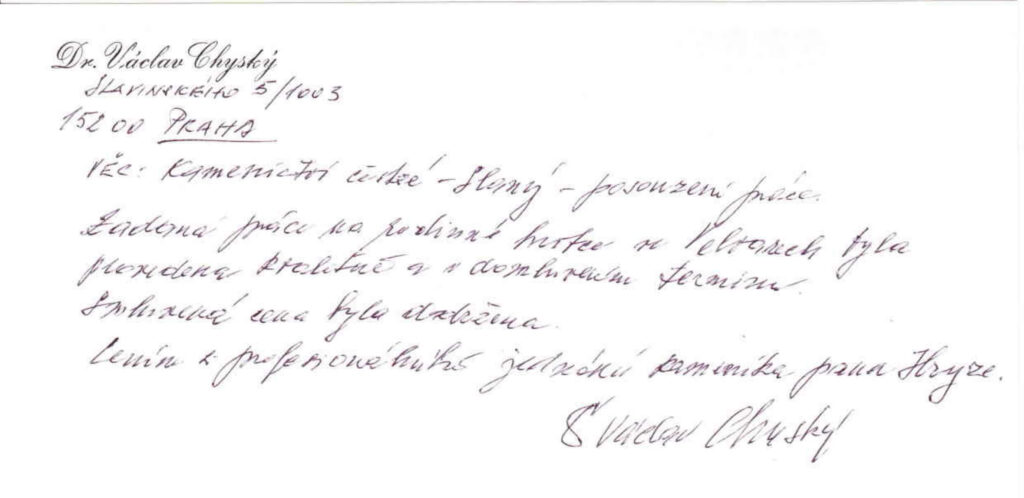 Dr. Václav Chyský
SLAVINSKÉHO 5/1003
152 00 PRAHA
VĚC: Kamenictví české - Slaný - posouzení práce.
Zadaná práce na rodinné hrobce ve Veltrusech byla
provedena kvalitně a v domluveném termínu.
Smluvená cena byla dodržena.
Cením si profesionálního jednání kameníka pana
Václav Chyský